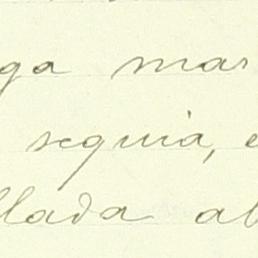 ga mar
sequia, e
llada ab